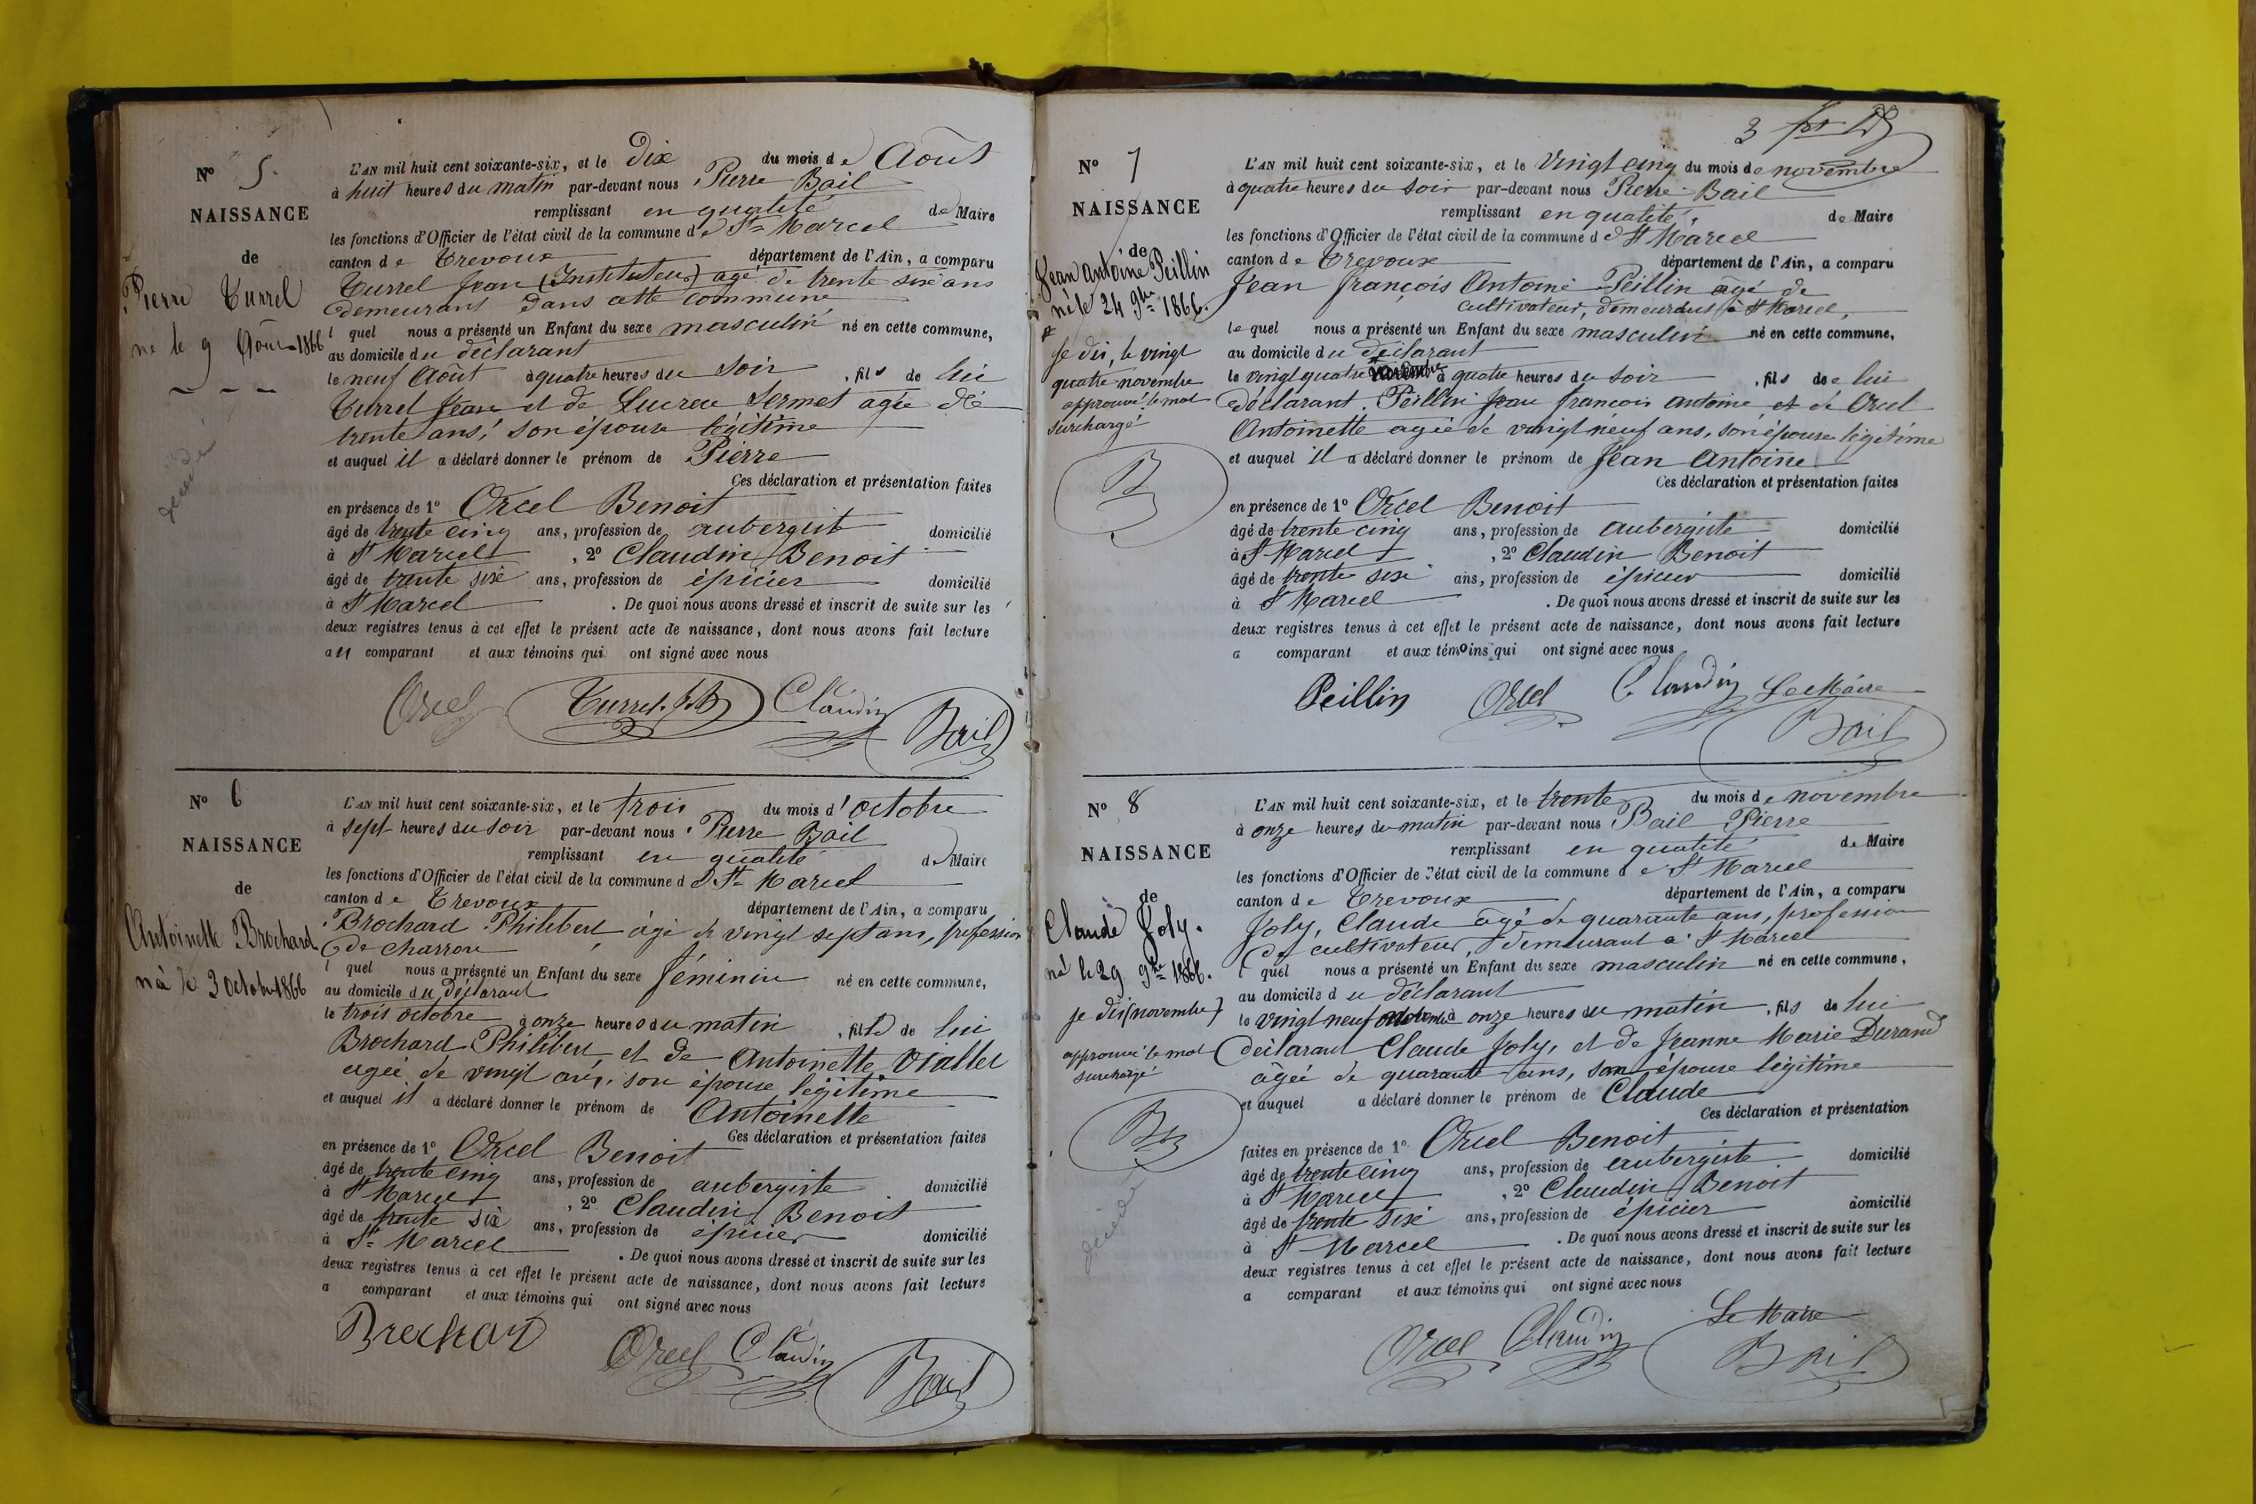 N° 5.
NAISSANCE
de
Pierre Turrel
né le 9 Août 1866
décédé
L'AN mil huit cent soixante-six, et le dix du mois de Août
à huit heures du matin par-devant nous Pierre Bail
remplissant en qualité de Maire
les fonctions d'Officier de l'état civil de la commune de St Marcel
canton de Trevoux département de l'Ain, a comparu
Turrel Jean (Instituteur) agé de trente six ans
demeurant dans cette commune
l quel nous a présenté un Enfant du sexe masculin né en cette commune,
au domicile du déclarant
le neuf Août à quatre heures du soir, fils de lui
Turrel Jean et de Sermet agée de
trente ans, son épouse légitime
et auquel il a déclaré donner le prénom de Pierre
Ces déclaration et présentation faites
en présence de 1° Orcel Benoit
âgé de trente cinq ans, profession de aubergiste domicilié
à St Marcel, 2° Claudin Benoit
âgé de trente six ans, profession de épicier domicilié
à St Marcel. De quoi nous avons dressé et inscrit de suite sur les
deux registres tenus à cet effet le présent acte de naissance, dont nous avons fait lecture
au comparant et aux témoins qui ont signé avec nous
Orcel Turrel Claudin
Bail
N° 6
NAISSANCE
de
Antoinette Brochard
né le 3 octobre 1866
L'AN mil huit cent soixante-six, et le trois du mois d'octobre
à sept heures du soir par-devant nous Pierre Bail
remplissant en qualité de Maire
les fonctions d'Officier de l'état civil de la commune de St Marcel
canton de Trevoux département de l'Ain, a comparu
Brochard Philibert âgé de vingt sept ans, profession
de charron
l quel nous a présenté un Enfant du sexe féminin né en cette commune,
au domicile du déclarant
le trois octobre à onze heures du matin, fille de lui
Brochard Philibert et de Antoinette Viallet
agée de vingt ans, son épouse légitime
et auquel il a déclaré donner le prénom de Antoinette
Ces déclaration et présentation faites
en présence de 1° Orcel Benoit
âgé de trente cinq ans, profession de aubergiste domicilié
à St Marcel, 2° Claudin Benoit
âgé de trente six ans, profession de épicier domicilié
à St Marcel. De quoi nous avons dressé et inscrit de suite sur les
deux registres tenus à cet effet le présent acte de naissance, dont nous avons fait lecture
a comparant et aux témoins qui ont signé avec nous
Brochard
Orcel Claudin
Bail
3
N° 7
NAISSANCE
de
Jean Antoine Peillin
né le 24 9bre 1866.
Je dis, le vingt
quatre novembre
approuvé le mot
surchargé
B
L'AN mil huit cent soixante-six, et le vingt cinq du mois de novembre
à quatre heures du soir par-devant nous Pierre Bail
remplissant en qualité de Maire
les fonctions d'Officier de l'état civil de la commune de St Marcel
canton de Trevoux département de l'Ain, a comparu
Jean françois Antoine Peillin agé de
cultivateur, demeurant à St Marcel,
le quel nous a présenté un Enfant du sexe masculin né en cette commune,
au domicile du déclarant
le vingt quatre novembre à quatre heures du soir, fils de lui
déclarant Peillin Jean françois antoine et de Orcel
Antoinette agée de vingt neuf ans, son épouse légitime
et auquel il a déclaré donner le prénom de Jean Antoine
Ces déclaration et présentation faites
en présence de 1° Orcel Benoit
âgé de trente cinq ans, profession de aubergiste domicilié
à St Marcel, 2° Claudin Benoit
âgé de trente six ans, profession de épicier domicilié
à St Marcel. De quoi nous avons dressé et inscrit de suite sur les
deux registres tenus à cet effet le présent acte de naissance, dont nous avons fait lecture
a comparant et aux témoins qui ont signé avec nous
Peillin Orcel Claudin Le Maire
Bail
N° 8
NAISSANCE
de
Claude Joly.
né le 29 9bre 1866.
je dis (novembre)
approuvé le mot
surchargé
B
décédé
L'AN mil huit cent soixante-six, et le trente du mois de novembre
à onze heures du matin par-devant nous Bail Pierre
remplissant en qualité de Maire
les fonctions d'Officier de l'état civil de la commune de St Marcel
canton de Trevoux département de l'Ain, a comparu
Joly, Claude âgé de quarante ans, profession
de cultivateur, demeurant à St Marcel
l quel nous a présenté un Enfant du sexe masculin né en cette commune,
au domicile du déclarant
le vingt neuf novembre à onze heures du matin, fils de lui
déclarant Claude Joly, et de Jeanne Marie Durand
âgée de quarante ans, son épouse légitime
et auquel a déclaré donner le prénom de Claude
Ces déclaration et présentation
faites en présence de 1° Orcel Benoit
âgé de trente cinq ans, profession de aubergiste domicilié
à St Marcel, 2° Claudin Benoit
âgé de trente six ans, profession de épicier domicilié
à St Marcel. De quoi nous avons dressé et inscrit de suite sur les
deux registres tenus à cet effet le présent acte de naissance, dont nous avons fait lecture
a comparant et aux témoins qui ont signé avec nous
Orcel Claudin Le Maire
Bail